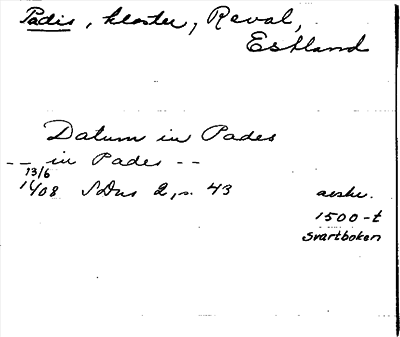 Padis, kloster, Reval,
Estland
Datum in Pades
-- in Pades --
13/6
1408 SDns 2, s. 43
aeske.
1500-t
Svartboken